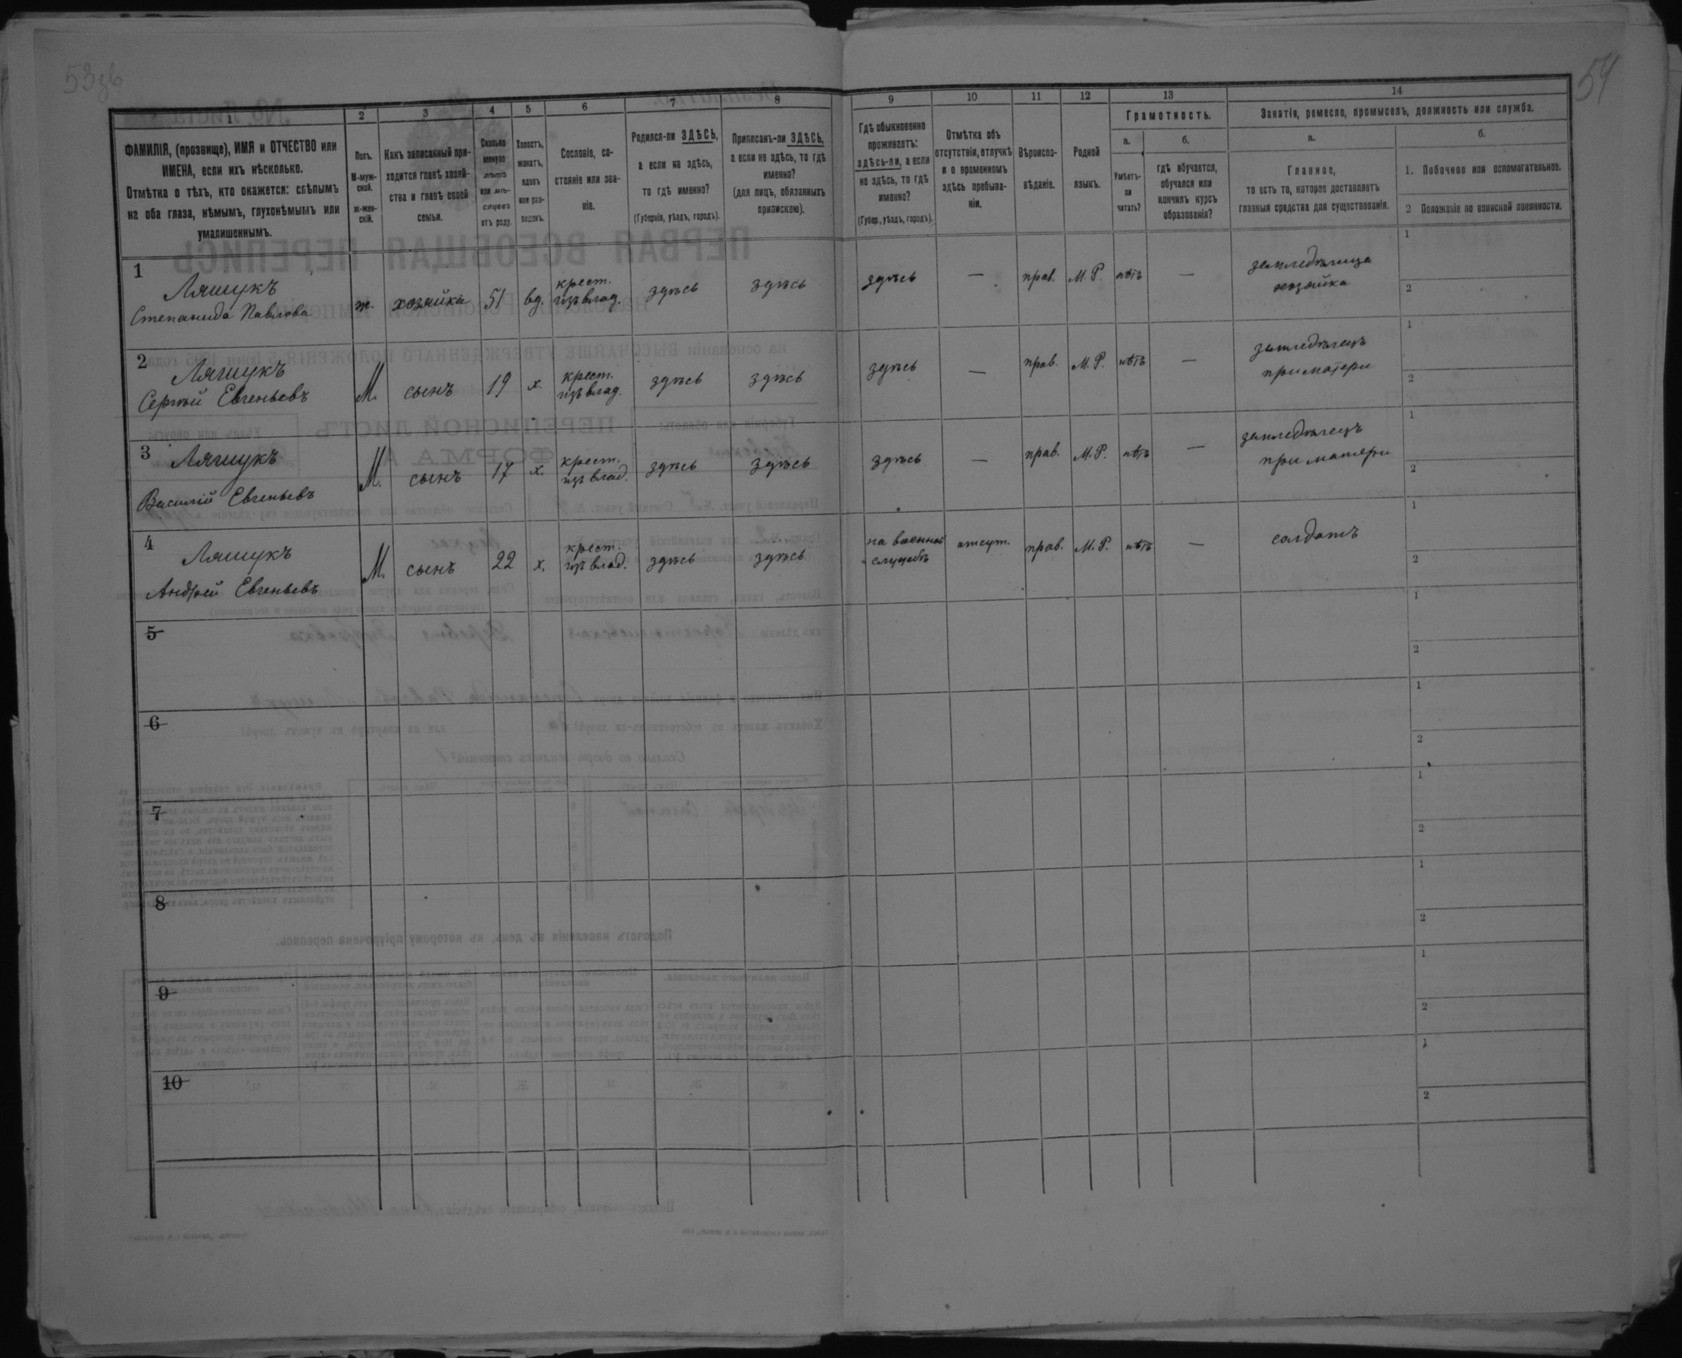 53об
54
1
2
3
4
5
6
7
8
9
10
11
12
13
14
ФАМИЛІЯ, (прозвище), ИМЯ и ОТЧЕСТВО или
ИМЕНА, если ихъ нѣсколько.
Отмѣтка о тѣхъ, кто окажется: слѣпымъ
на оба глаза, нѣмымъ, глухонѣмымъ или
умалишеннымъ.
Полъ.
М-муж-
ской.
ж-жен-
скій.
Какъ записанный при-
ходится главѣ хозяй-
ства и главѣ своей
семьи.
Сколько
минуло
лѣтъ
или мѣ-
сяцевъ
отъ роду.
Холостъ,
женатъ,
вдовъ
или раз-
веденъ.
Сословіе, со-
стояніе или зва-
ніе.
Родился-ли ЗДѢСЬ,
а если не здѣсь,
то гдѣ именно?
(Губернія, уѣздъ, городъ).
Приписанъ-ли ЗДѢСЬ,
а если не здѣсь, то гдѣ
именно?
(для лицъ, обязанныхъ
припискою).
Гдѣ обыкновенно
проживаетъ:
здѣсь-ли, а если
не здѣсь, то гдѣ
именно?
(Губер., уѣздъ, городъ).
Отмѣтка объ
отсутствіи, отлучкѣ
и о временномъ
здѣсь пребыва-
ніи.
Вѣроиспо-
вѣданіе.
Родной
языкъ.
Грамотность.
а.
Умѣетъ-
ли
читать?
б.
гдѣ обучается,
обучался или
кончилъ курсъ
образованія?
Занятіе, ремесло, промыселъ, должность или служба.
а.
Главное,
то есть то, которое доставляетъ
главныя средства для существованія.
б.
1. Побочное или вспомогательное.
2 Положеніе по воинской повинности.
1 Ляшукъ Степанида Павлова ж. хозяйка 51 вд. крест. изъ влад. здѣсь здѣсь здѣсь — прав. М.Р. нѣтъ — земледѣлица хозяйка 1 2
2 Ляшукъ Сергѣй Евгеньевъ М. сынъ 19 х. крест. изъ влад. здѣсь здѣсь здѣсь — прав. М.Р. нѣтъ — земледѣлецъ при матери 1 2
3 Ляшукъ Василій Евгеньевъ М. сынъ 17 х. крест. изъ влад. здѣсь здѣсь здѣсь — прав. М.Р. нѣтъ — земледѣлецъ при матери 1 2
4 Ляшукъ Андрей Евгеньевъ М. сынъ 22 х. крест. изъ влад. здѣсь здѣсь на военной службѣ отсут. прав. М.Р. нѣтъ — солдатъ 1 2
5 1 2
6 1 2
7 1 2
8 1 2
9 1 2
10 1 2